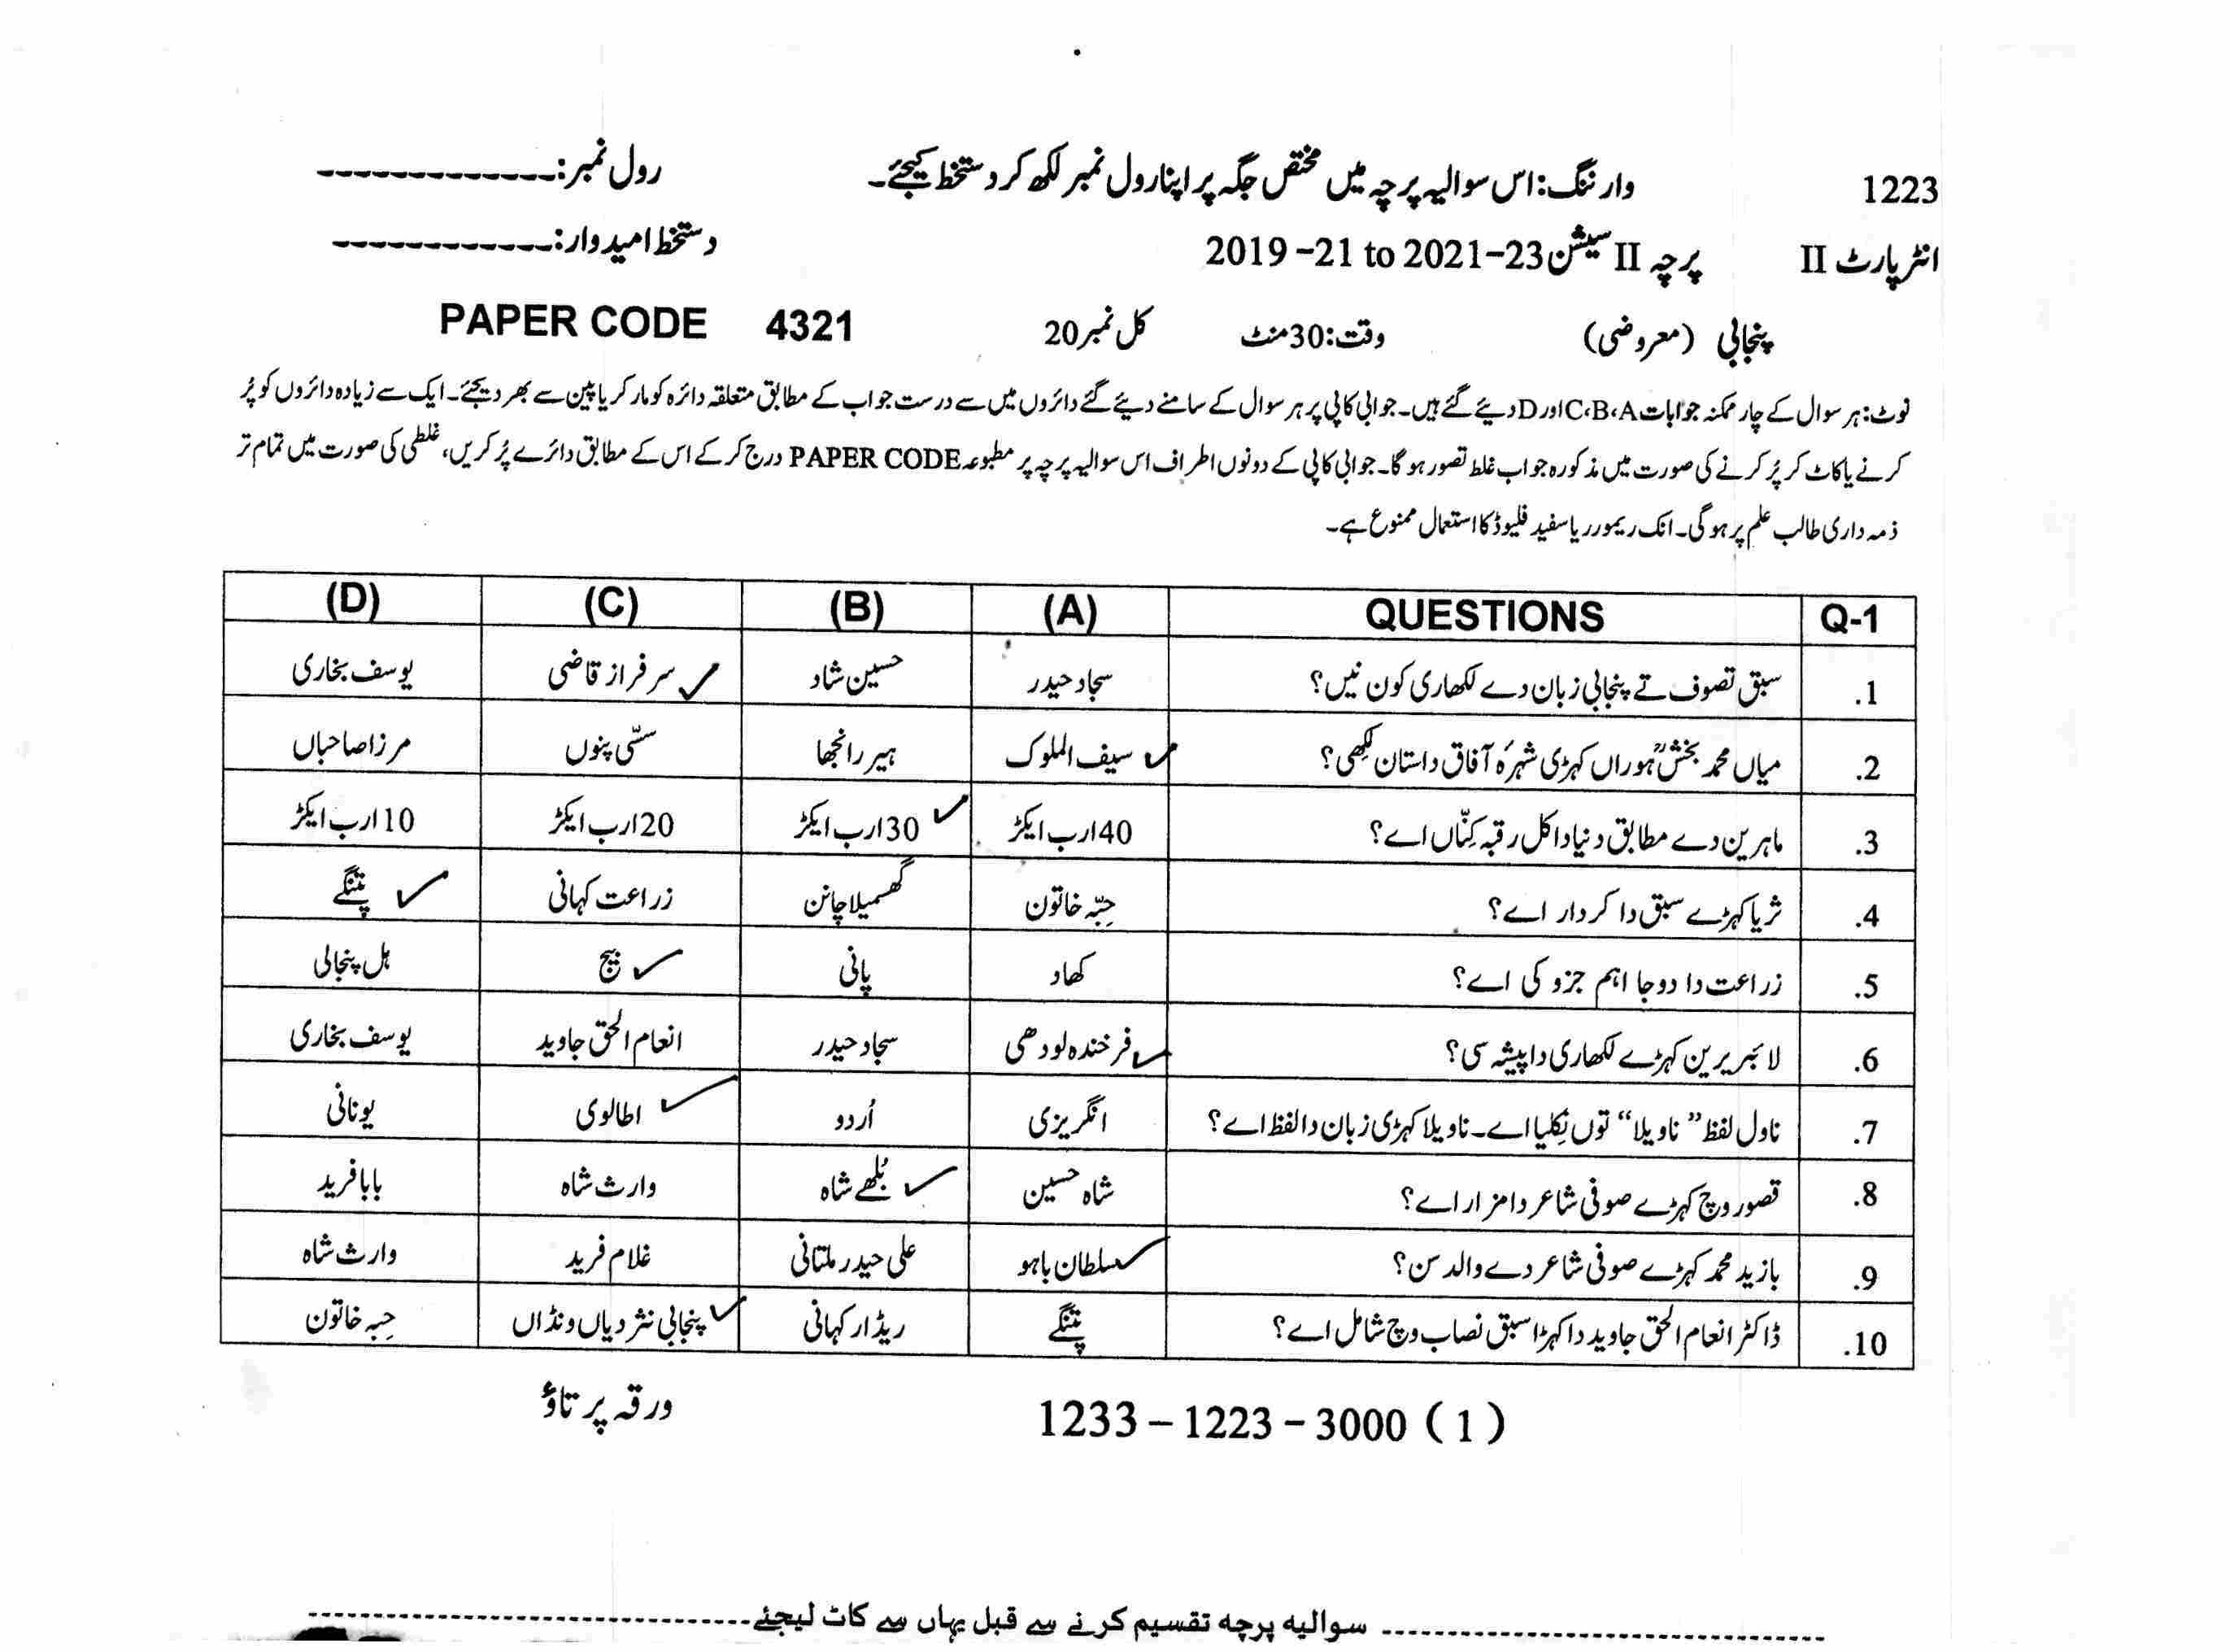 1223 وارننگ:اس سوالیہ پرچہ میں مختص جگہ پر اپنا رول نمبر لکھ کر دستخط کیجئے۔ رول نمبر:-------------
انٹر پارٹ II پرچہ II سیشن 2019 -21 to 2021-23 دستخط امیدوار:------------
پنجابی (معروضی) وقت:30منٹ کل نمبر20 PAPER CODE 4321
نوٹ:ہر سوال کے چار ممکنہ جوابات C،B،A اور D دیئے گئے ہیں۔جوابی کاپی پر ہر سوال کے سامنے دیئے گئے دائروں میں سے درست جواب کے مطابق متعلقہ دائرہ کو مارکر یا پین سے بھر دیجئے۔ایک سے زیادہ دائروں کو پُر
کرنے یا کاٹ کر پُر کرنے کی صورت میں مذکورہ جواب غلط تصور ہو گا۔جوابی کاپی کے دونوں اطراف اس سوالیہ پرچہ پر مطبوعہ PAPER CODE درج کر کے اس کے مطابق دائرے پُر کریں، غلطی کی صورت میں تمام تر
ذمہ داری طالب علم پر ہوگی۔انک ریمورر یا سفید فلیوڈ کا استعمال ممنوع ہے۔
Q-1 QUESTIONS (A) (B) (C) (D)
1. سبق تصوف تے پنجابی زبان دے لکھاری کون نیں؟ سجاد حیدر حسین شاد ✓ سرفراز قاضی یوسف بخاری
2. میاں محمد بخشؒ ہوراں کہڑی شہرۂ آفاق داستان لکھی؟ ✓ سیف الملوک ہیر رانجھا سسّی پنوں مرزا صاحباں
3. ماہرین دے مطابق دنیا دا کل رقبہ کِنّاں اے؟ 40ارب ایکڑ 30ارب ایکڑ ✓ 20ارب ایکڑ 10ارب ایکڑ
4. ثریا کہڑے سبق دا کردار اے؟ حبّہ خاتون گھسمیلا چانن زراعت کہانی پتنگے ✓
5. زراعت دا دوجا اہم جزو کی اے؟ کھاد پانی بیج ✓ ہل پنجالی
6. لائبریرین کہڑے لکھاری دا پیشہ سی؟ ✓ فرخندہ لودھی سجاد حیدر انعام الحق جاوید یوسف بخاری
7. ناول لفظ ”ناویلا“ توں نِکلیا اے۔ناویلا کہڑی زبان دا لفظ اے؟ انگریزی اُردو اطالوی ✓ یونانی
8. قصور وچ کہڑے صوفی شاعر دا مزار اے؟ شاہ حسین بُلھے شاہ ✓ وارث شاہ بابا فرید
9. بازید محمد کہڑے صوفی شاعر دے والد سن؟ ✓ سلطان باہو علی حیدر ملتانی غلام فرید وارث شاہ
10. ڈاکٹر انعام الحق جاوید دا کہڑا سبق نصاب وچ شامل اے؟ پتنگے ریڈار کہانی ✓ پنجابی نثر دیاں ونڈاں حبہ خاتون
1233 – 1223 – 3000 ( 1 ) ورقہ پرتاؤ
سوالیہ پرچہ تقسیم کرنے سے قبل یہاں سے کاٹ لیجئے